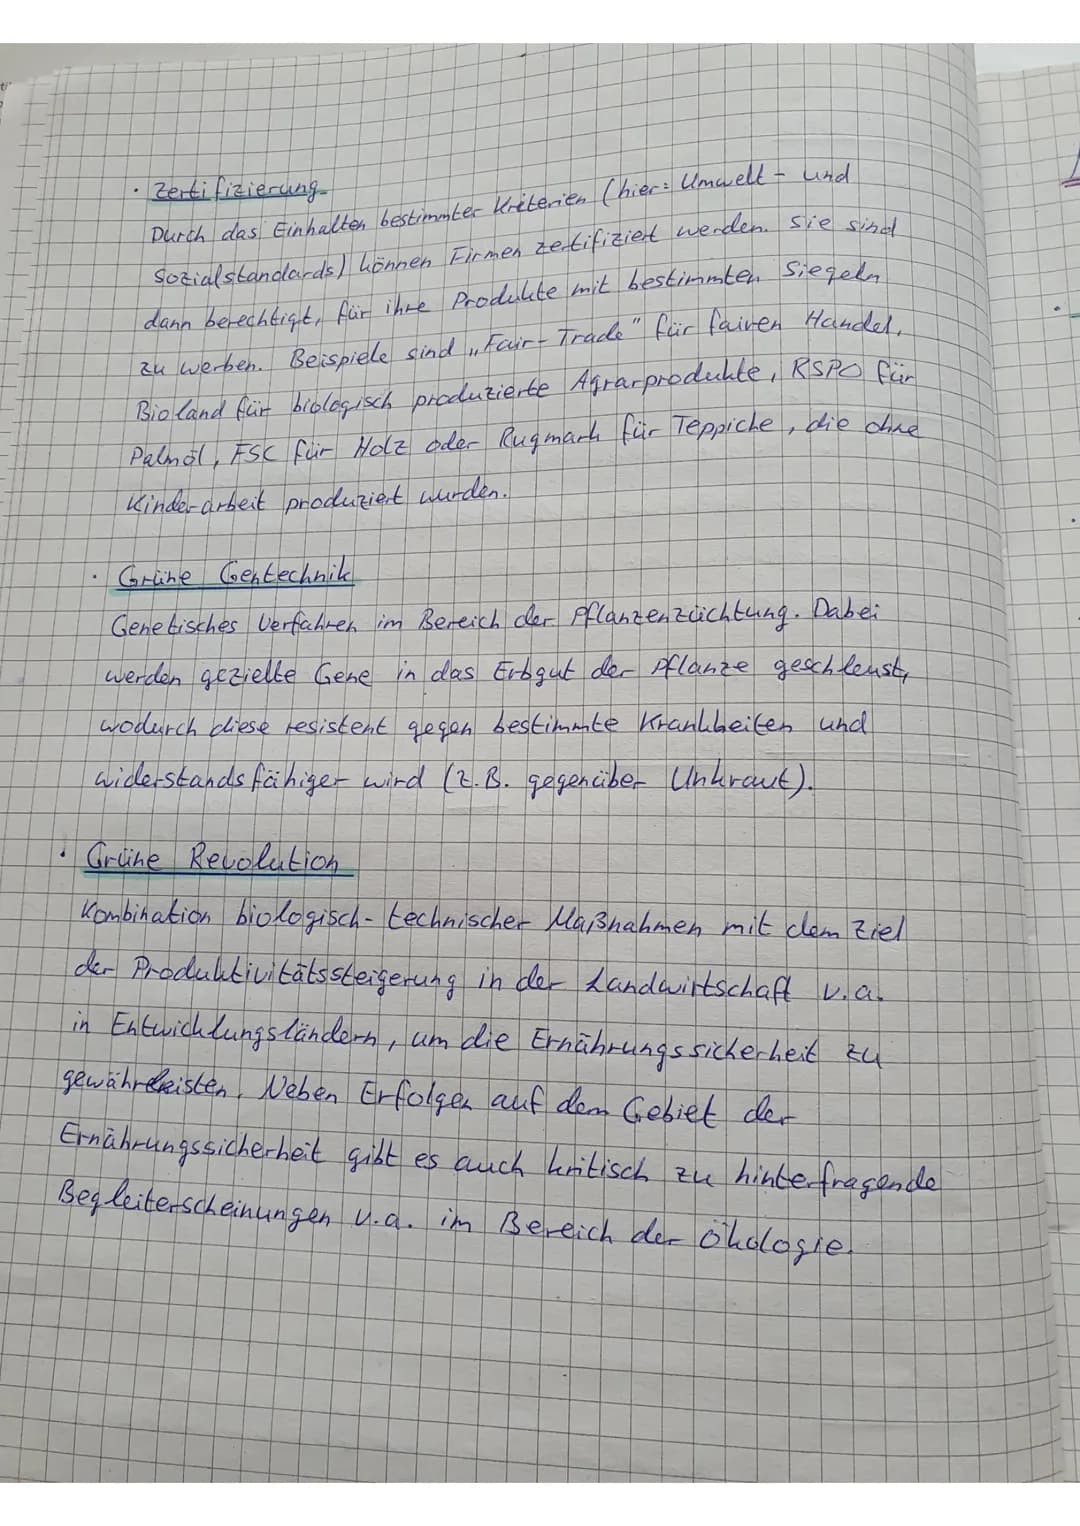 · Zertifizierung
Durch das Einhalten bestimmter Kriterien (hier: Umwelt- und
Sozialstandards) können Firmen zertifiziert werden. Sie sind
dann berechtigt, für ihre Produkte mit bestimmten Siegeln
zu werben. Beispiele sind „Fair-Trade" für fairen Handel,
Bioland für biologisch produzierte Agrarprodukte, RSPO für
Palmöl, FSC für Holz oder Rugmark für Teppiche, die ohne
Kinderarbeit produziert wurden.
· Grüne Gentechnik
Genetisches Verfahren im Bereich der Pflanzenzüchtung. Dabei
werden gezielte Gene in das Erbgut der Pflanze geschleust,
wodurch diese resistent gegen bestimmte Krankheiten und
widerstandsfähiger wird (z.B. gegenüber Unkraut).
· Grüne Revolution
Kombination biologisch-technischer Maßnahmen mit dem Ziel
der Produktivitätssteigerung in der Landwirtschaft v.a.
in Entwicklungsländern, um die Ernährungssicherheit zu
gewährleisten. Neben Erfolgen auf dem Gebiet der
Ernährungssicherheit gibt es auch kritisch zu hinterfragende
Begleiterscheinungen v.a. im Bereich der Ökologie.